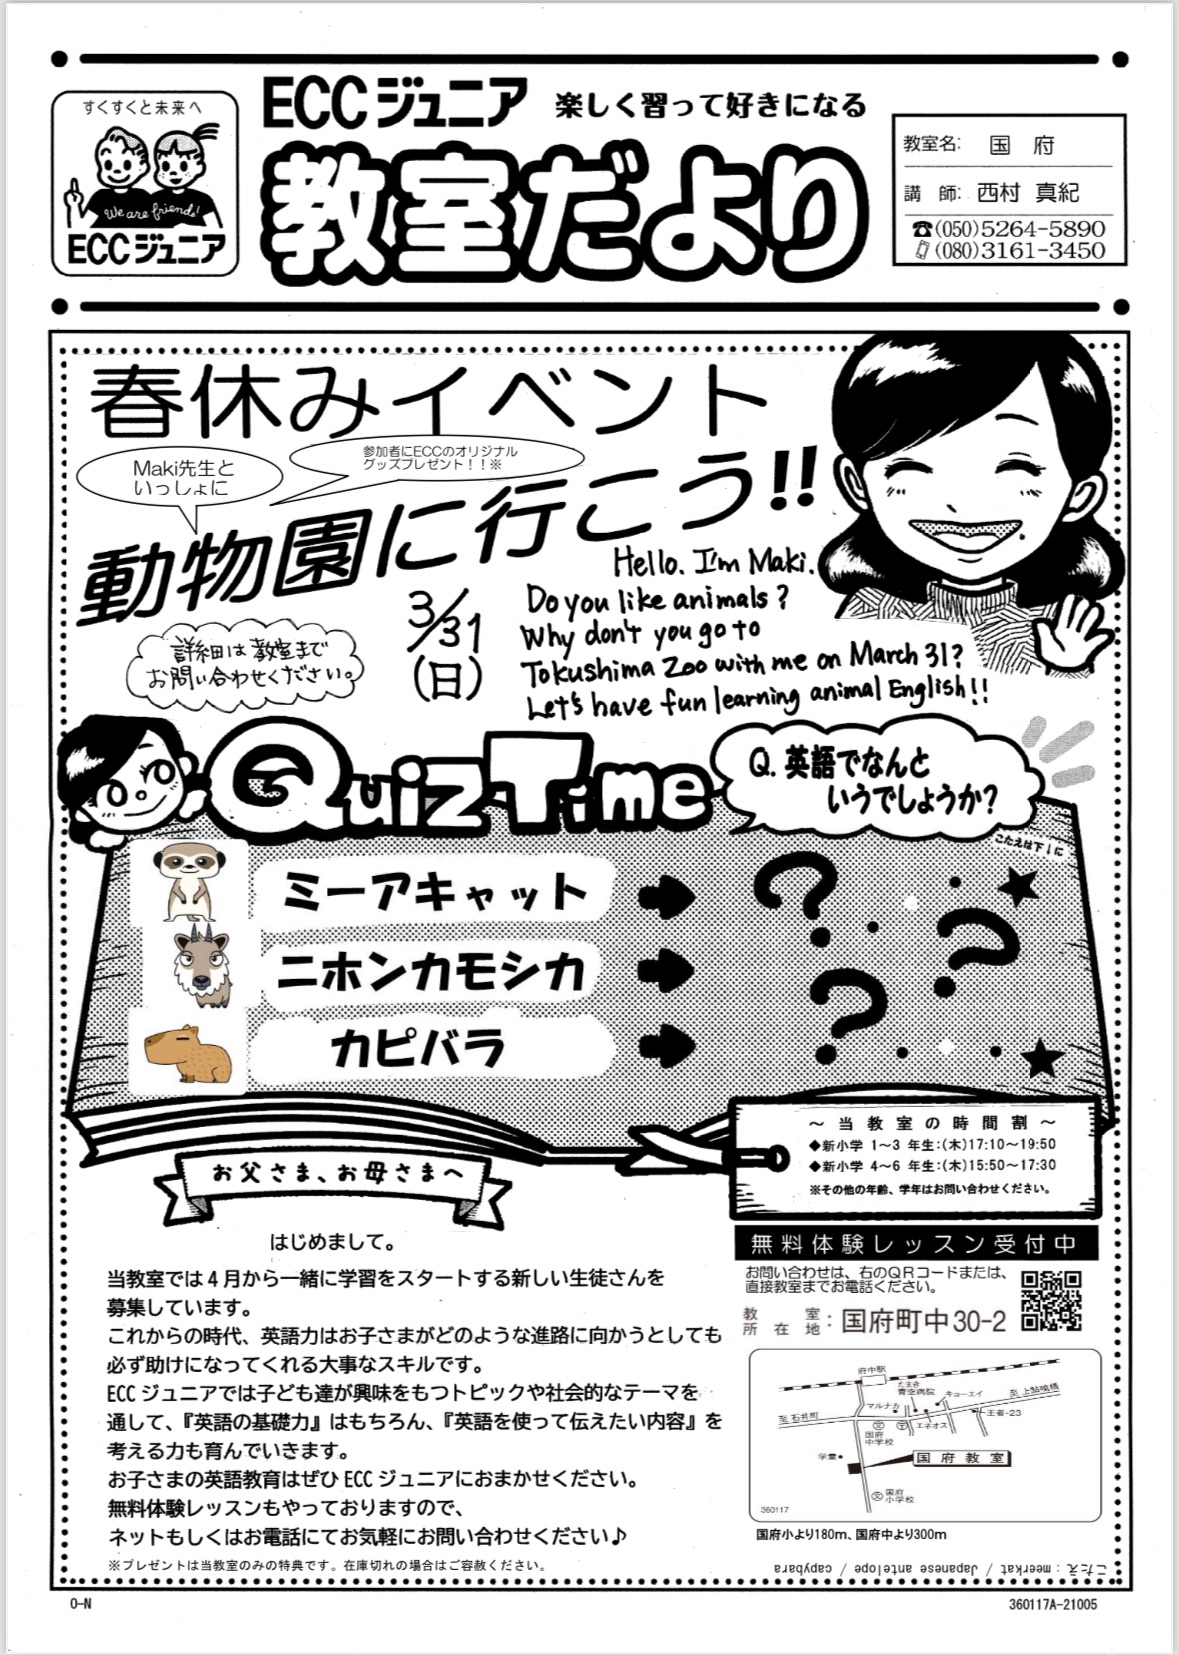 すくすくと未来へ
We are friends!
ECCジュニア
ECCジュニア 楽しく習って好きになる
教室だより
教室名: 国府
講師: 西村 真紀
☎(050)5264-5890
(080)3161-3450
春休みイベント
Maki先生と
いっしょに
参加者にECCのオリジナル
グッズプレゼント！！※
動物園に行こう!!
3/31
(日)
詳細は教室まで
お問い合わせください。
Hello. I'm Maki.
Do you like animals?
Why don't you go to
Tokushima Zoo with me on March 31?
Let's have fun learning animal English!!
Quiz Time
Q. 英語でなんと
いうでしょうか?
こたえは下↓に
ミーアキャット
ニホンカモシカ
カピバラ
～ 当教室の時間割 ～
◆新小学 1～3 年生:(木)17:10～19:50
◆新小学 4～6 年生:(木)15:50～17:30
※その他の年齢、学年はお問い合わせください。
お父さま、お母さまへ
はじめまして。
当教室では4月から一緒に学習をスタートする新しい生徒さんを
募集しています。
これからの時代、英語力はお子さまがどのような進路に向かうとしても
必ず助けになってくれる大事なスキルです。
ECCジュニアでは子ども達が興味をもつトピックや社会的なテーマを
通して、『英語の基礎力』はもちろん、『英語を使って伝えたい内容』を
考える力も育んでいきます。
お子さまの英語教育はぜひECCジュニアにおまかせください。
無料体験レッスンもやっておりますので、
ネットもしくはお電話にてお気軽にお問い合わせください♪
※プレゼントは当教室のみの特典です。在庫切れの場合はご容赦ください。
無料体験レッスン受付中
お問い合わせは、右のQRコードまたは、
直接教室までお電話ください。
教室所在地: 国府町中30-2
府中駅
たまき
青空病院
キョーエイ
至 上鮎喰橋
マルナカ
至 石井町
エネオス
王者-23
国府
中学校
学童
国府教室
国府
小学校
360117
国府小より180m、国府中より300m
こたえ：meerkat / Japanese antelope / capybara
O-N
360117A-21005